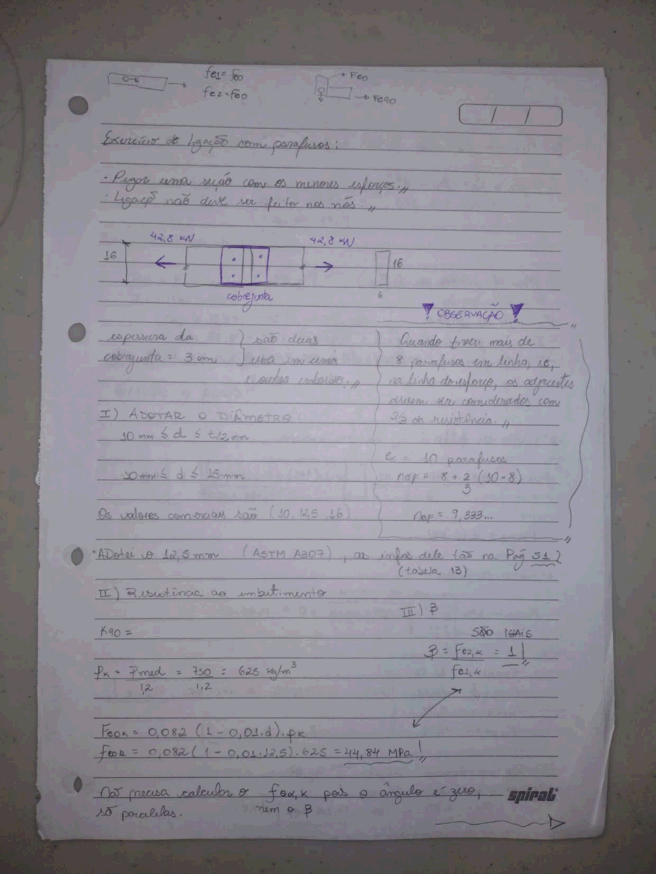 fe1 = fe0
fe2 = fe0
Fe0
Fe90
Exercício de Ligação com parafusos:
- Pegar uma seção com os menores esforços.,,
- Ligaçõ não deve ser feita nos nós ,,
42,8 kN 42,8 kN
16 16
6
cobrejunta
OBSERVAÇÃO
espessura da
cobrejunta = 3 cm
são duas
uma em uma
Quando tiver mais de
8 parafusos em linha, ie,
na linha do esforço, os adjacentes
devem ser considerados com
2/3 da resistência.,,
I) ADOTAR O DIÂMETRO
10 mm ≤ d ≤ t/2 mm
10 mm ≤ d ≤ 15 mm
= 10 parafusos
nef = 8 + 2/3 (10-8)
nef = 9,333...
Os valores comerciais são (10, 12.5, 16)
*ADotei o 12,5 mm (ASTM A307), as infos dele tão na Pág 51)
(tabela 13)
II) Resistência ao embutimento
III) β
K90 =
SÃO IGUAIS
β = fe2,k / fe1,k = 1!
ρk = ρmed / 1,2 = 750 / 1,2 = 625 kg/m³
Fe0k = 0,082 (1 - 0,01.d).ρk
fe0k = 0,082 (1 - 0,01.12,5).625 = 44,84 MPa!
Não precisa calcular o feα,k pois o ângulo é zero,
são paralelas. nem o β
spiral